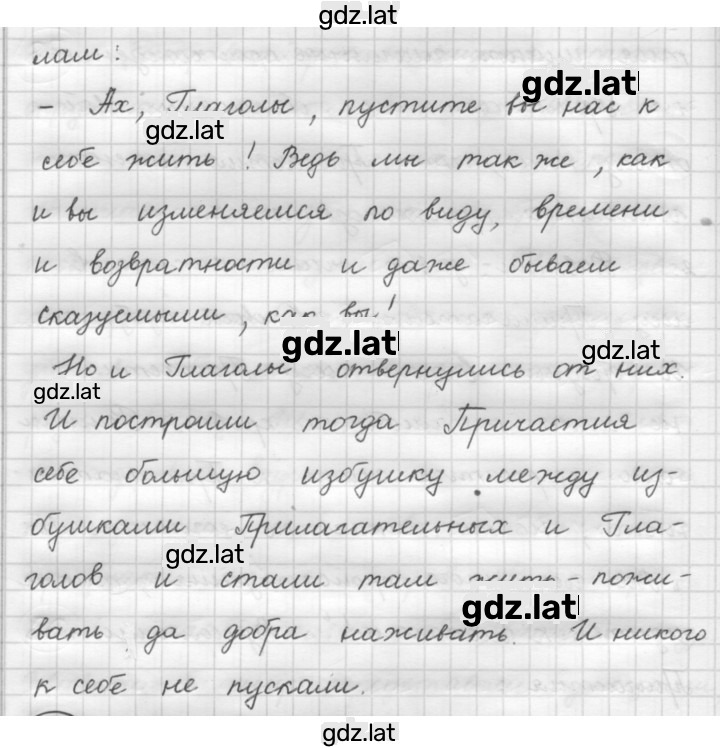 gdz.lat
лам:
gdz.lat
- Ах, Глаголы, пустите вы нас к
gdz.lat
себе жить! Ведь мы так же, как
и вы изменяемся по виду, времени
и возвратности и даже бываем
сказуемыми, как вы!
gdz.lat
gdz.lat
Но и Глаголы отвернулись от них.
gdz.lat
И построили тогда Причастия
себе большую избушку между из-
бушками Прилагательных и Гла-
gdz.lat
голов и стали там жить-пожи-
gdz.lat
вать да добра наживать. И никого
к себе не пускали.
gdz.lat